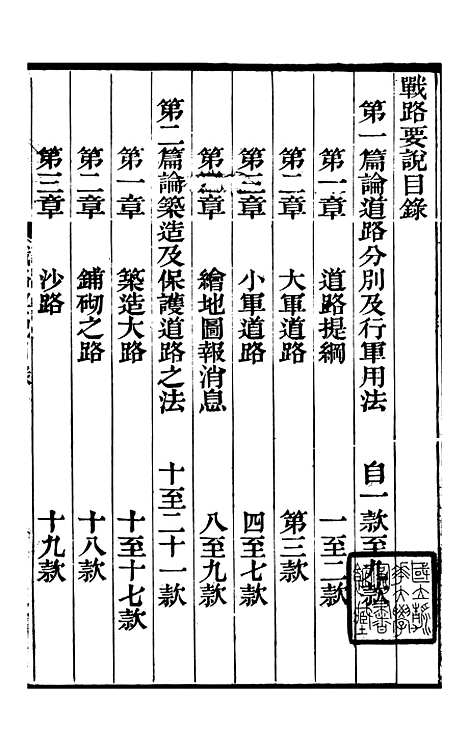 戰路要說目錄
第一篇論道路分別及行軍用法 自一款至九款
第一章 道路提綱 一至二款
第二章 大軍道路 第三款
第三章 小軍道路 四至七款
第章 繪地圖報消息 八至九款
第二篇論築造及保護道路之法 十至二十一款
第一章 築造大路 十至十七款
第二章 鋪砌之路 十八款
第三章 沙路 十九款